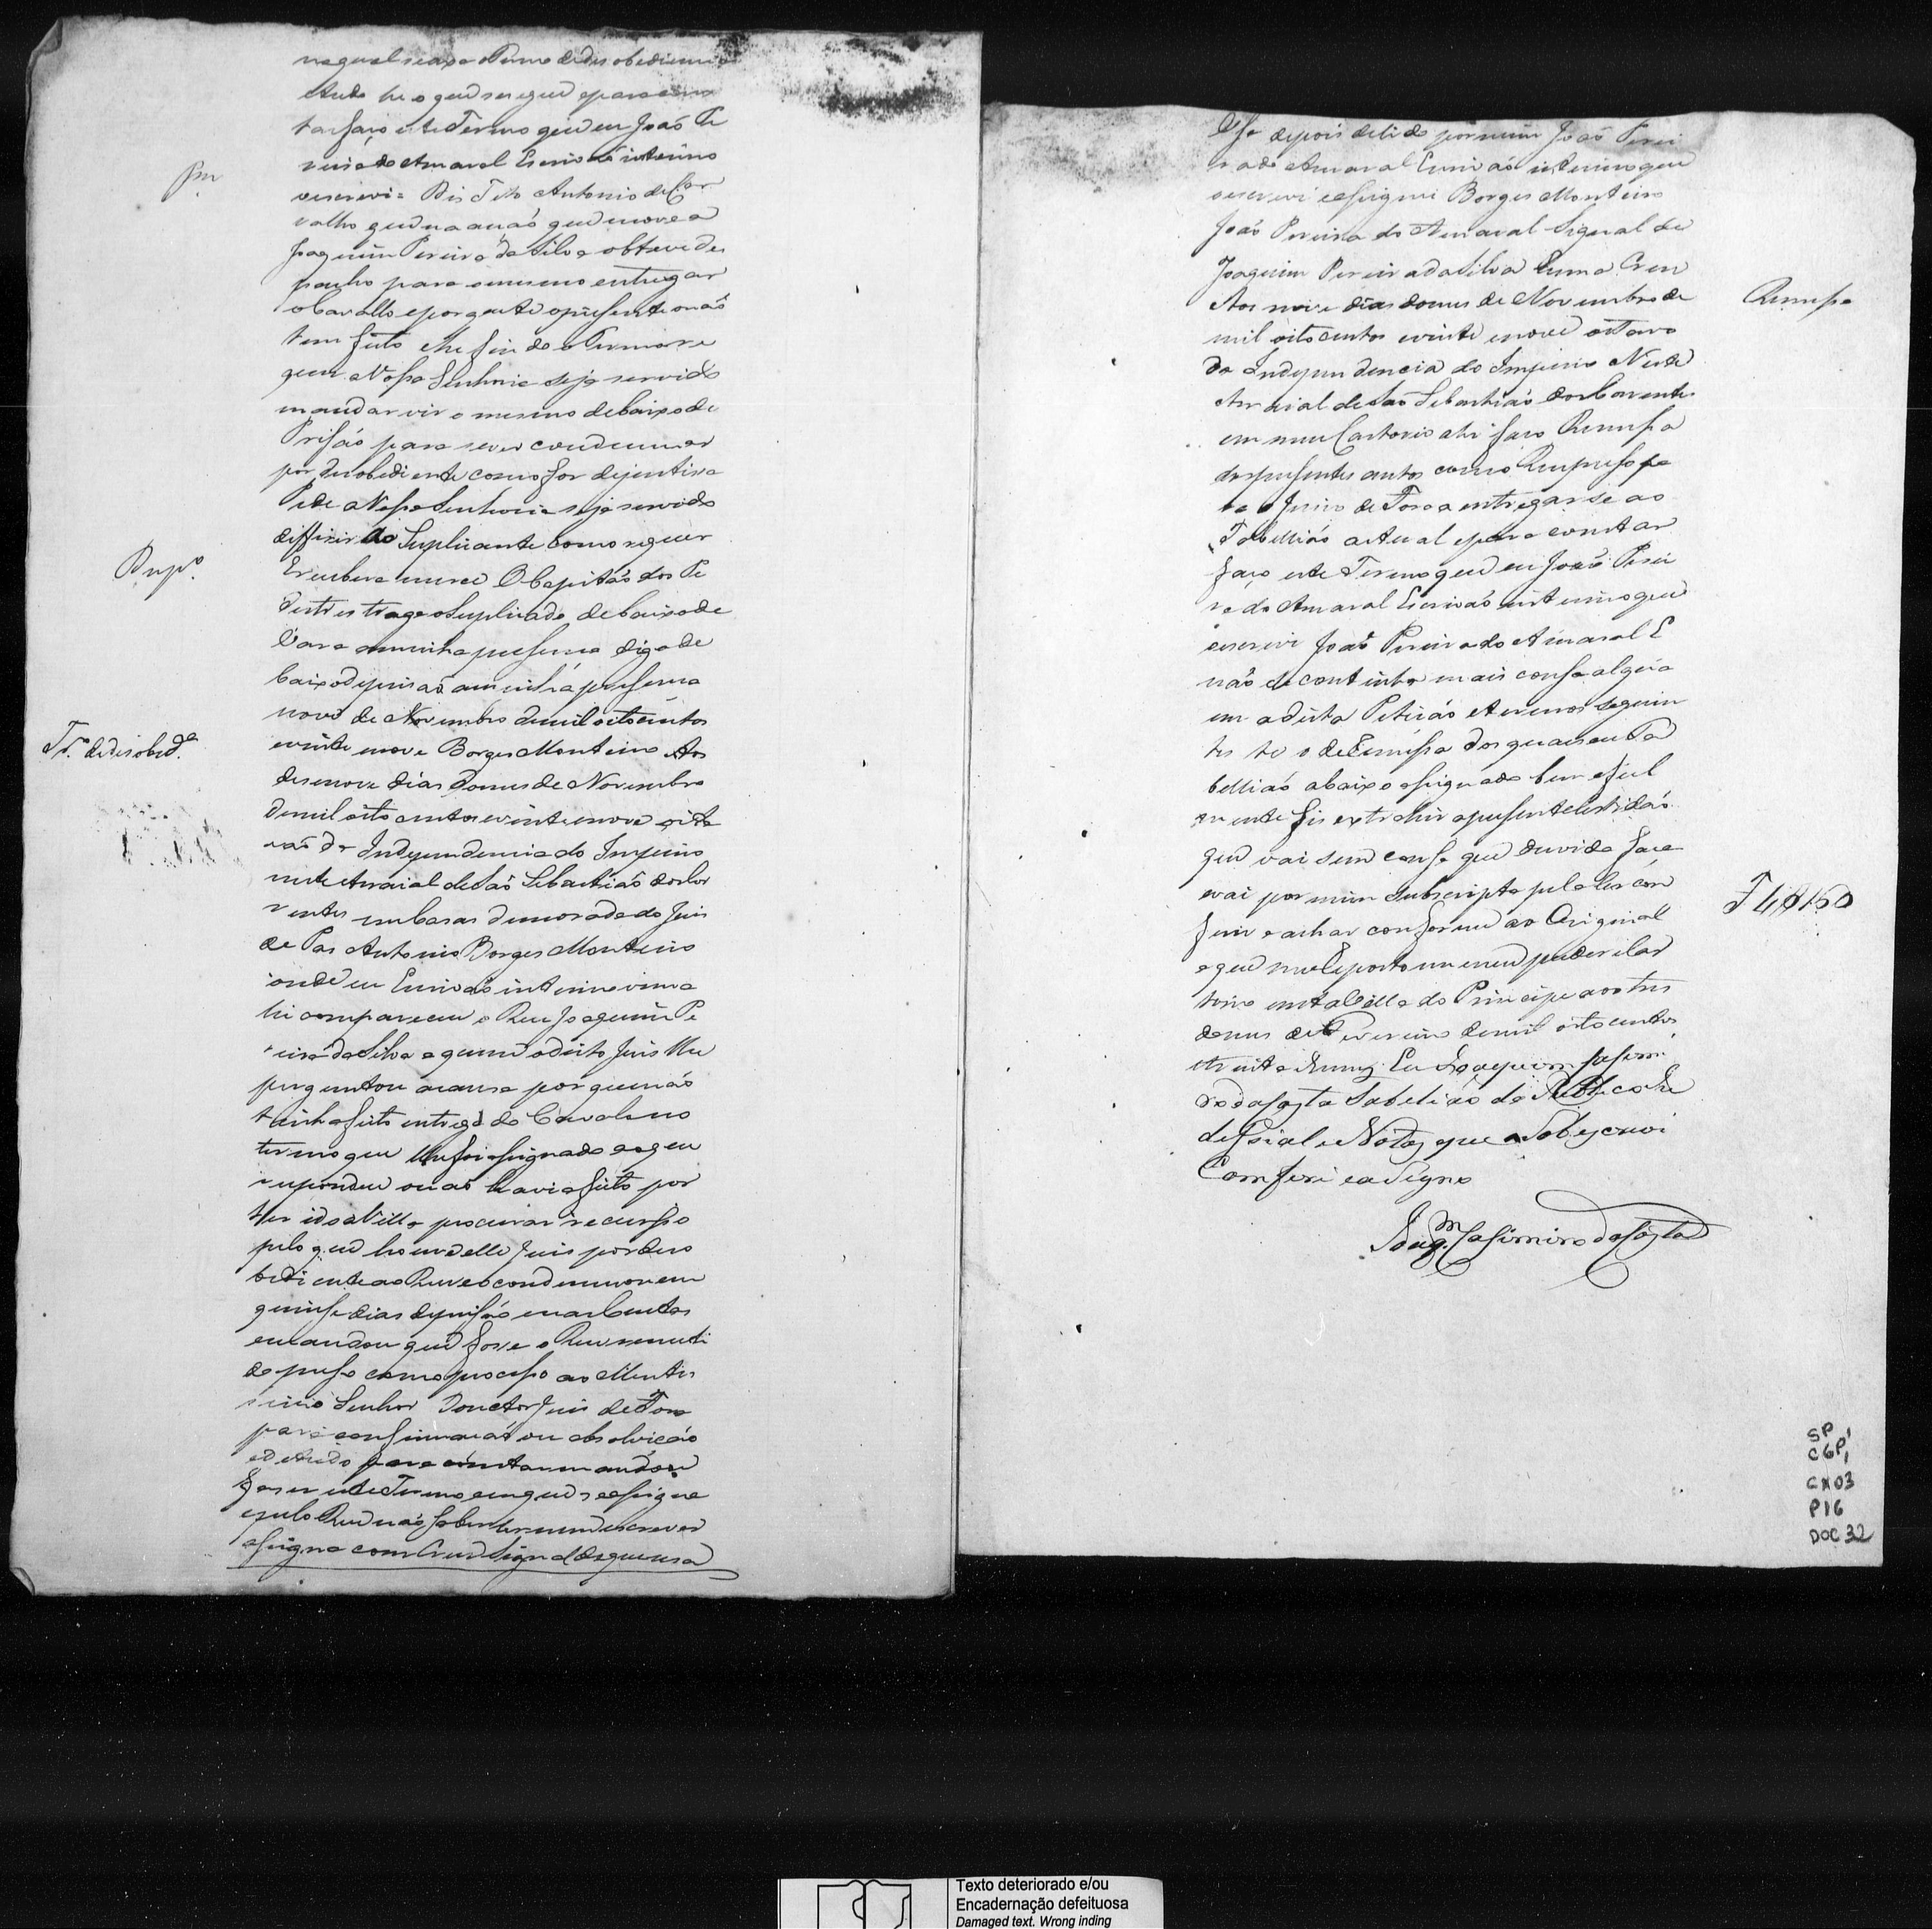 na qual seaxa o Termo de desobediencia
tudo he o que se segue e para cons
tar faço este Termo que eu João Pe
reira do Amaral Escrivão interino
o escrevi = Dis Tito Antonio de Car
Pm
valho que na acuão que move a
Joaquim Pereira da Silva obteve des
pacho para o mesmo entregar
o Cavallo e por que the o presente o não
tem feito e he findo o Termo re
quer a Vossa Senhoria seja servido
mandar vir o mesmo debaixo de
Prisão para se ver condemnar
por desobediente como for de justiça
Pede a Vossa Senhoria seja servido
differir ao Suplicante como requer
E recebera merce O Capitão dos Pe
Desp.o
destres traga o Suplicado debaixo de
Vara a minha presença digo de
baixo de prisão a minha presença
nove de Novembro de mil oito centos
e vinte e nove Borges Monteiro Aos
T.o de desobed.a
desenove dias do mes de Novembro
de mil oito centos e vinte e nove oita
vao da Independencia do Imperio
neste Arraial de São Sebastião dos Cor
rentes em Casas de morada do Juis
de Pas Antonio Borges Monteiro
onde eu Escrivão interino vim a
hi compareceu o Reu Joaquim Pe
reira da Silva a quem o dito Juis lhe
perguntou a causa por que não
tinha feito entrega do Cavalo no
termo que lhe foi assignado e o que
respondeu o não havia feito por
ter ido a Villa procurar recurso
pelo que houve elle Juis por deso
bediente ao Reu e o condemnou em
quinse dias de prisão e nas Custas
e mandou que fosse o Reu remeti
do preso com o processo ao Meritis
simo Senhor Doutor Juis de Fora
para confirmacão ou absolvicão
e de tudo para constar mandou
faser este Termo em que se assigna
e pelo Reu não saber ler nem escrever
assigna com Cruz Signal de que usa
Esse depois de lido por mim João Perei
ra do Amaral Escrivão interino que
o escrevi e assignei Borges Monteiro
João Pereira do Amaral Signal de
Joaquim Pereira da Silva huma Crus
Remessa
Aos nove dias do mes de Novembro de
mil oito centos e vinte e nove oitavo
da Independencia do Imperio Neste
Arraial de São Sebastião dos Correntes
em meu Cartorio ahi faço Remessa
dos presentes autos com o Reu preso pa
ra o Juizo de Fora a entregar-se ao
Tabellião actual e para constar
faço este Termo que eu João Perei
ra do Amaral Escrivão interino que
o escrevi João Pereira do Amaral E
não se continha mais cousa alguã
em a dita Petição e termos seguin
tes te o de Remessa dos quaes eu Ta
bellião abaixo assignado bem e fiel
mente fis extrahir a presente Certidão
que vai sem cousa que duvida faca
e vai por mim subscripta pela ler con
ferir e achar conforme ao Original
T 4$150
a que me Reporto em meu poder e Car
torio nesta Villa do Principe aos tres
do mes de Fevereiro de mil oito centos
e trinta Annos. Eu Joaquim Casemi
ro da Costa Tabelião do Publico Ju
dissial e Notas que a Sobescrevi
Comferi e a Signo
Joaq.m Casimiro da Costa
SP
C6P1
CX03
P16
DOC 32
Texto deteriorado e/ou
Encadernação defeituosa
Damaged text. Wrong inding